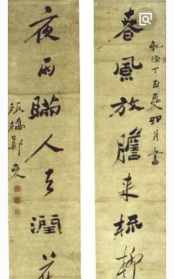 春風放膽來梳柳
月書
夜雨瞞人去潤花
板橋鄭燮